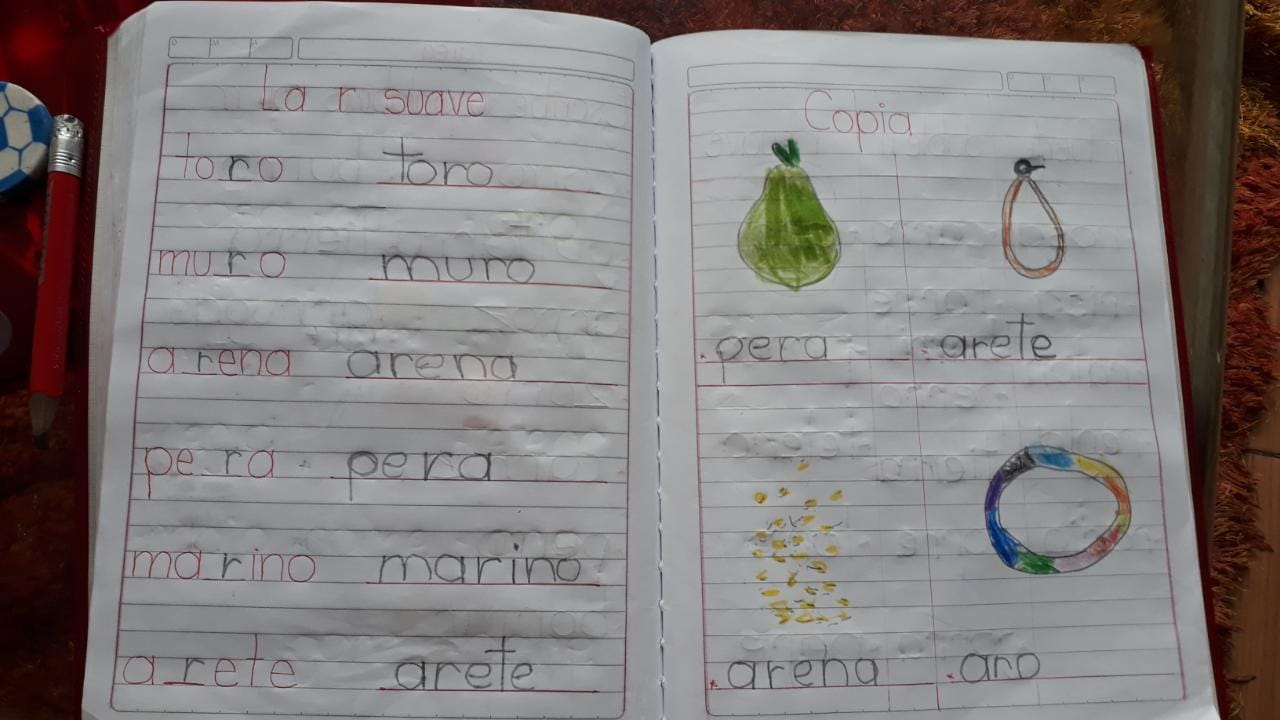 La r suave
toro toro
muro muro
arena arena
pera pera
marino marino
arete arete
Copia
pera arete
arena aro